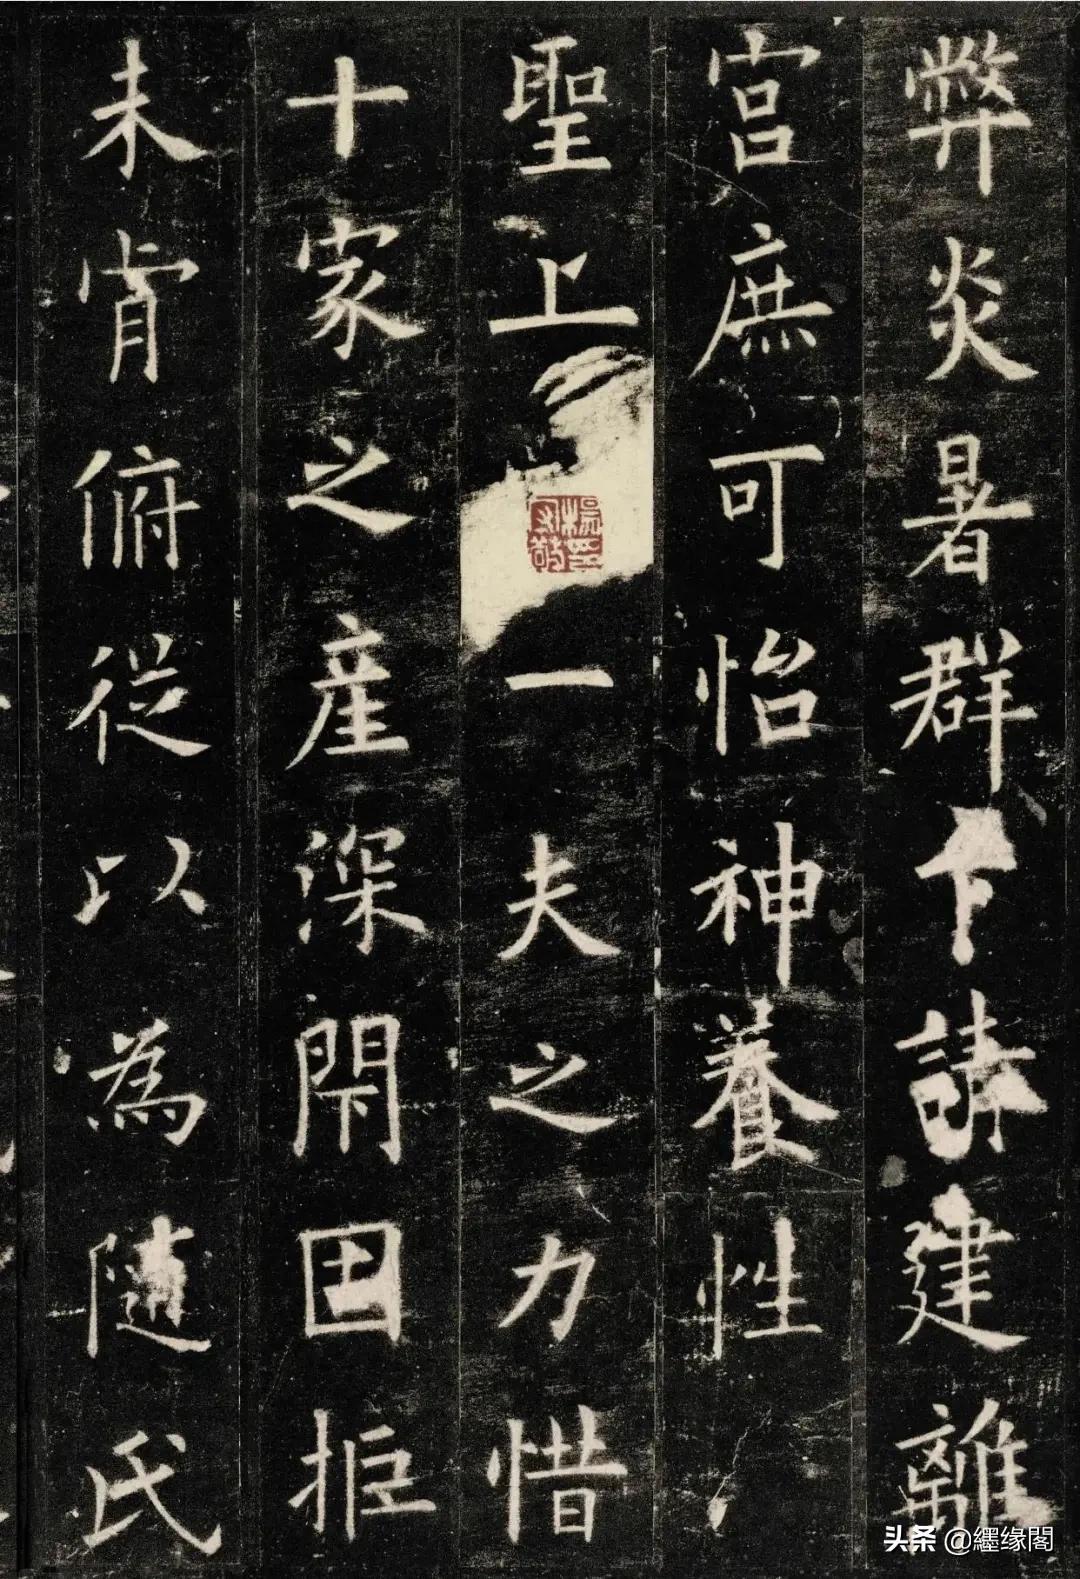 弊炎暑群下請建離
宫庶可怡神養性
聖上一夫之力惜
十家之產深閇固拒
未肯俯從以為隨氏
楊印守敬
头条 @纒缘閣